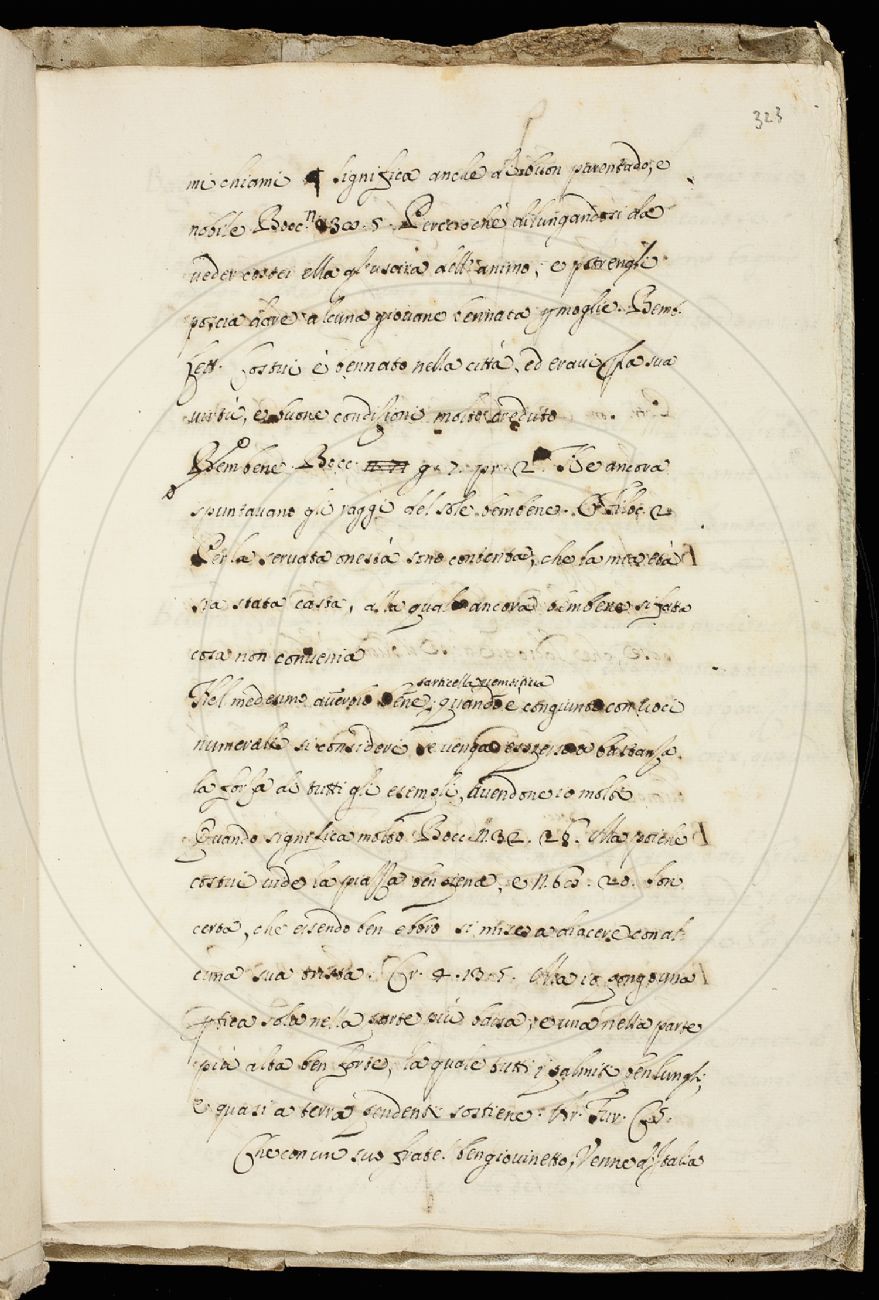 323
mi chiami significa anche di buon parentado, e
nobile. Bocc. n. 5. Percioche dilungandosi da
ueder costei ella gl'uscirà dell'animo, e potrengli
poscia dare alcuna giouane bennata p moglie. Bemb.
lett. Costui è bennato nella città, ed eraui p la sua
uirtù, e buone condizioni molto creduto
Bembene. Bocc. g. 7. pr. 2. Ne ancora
spuntauano gli raggi del sole bembene. Filoc. 2
Per la seruata onestà sono contenta, che la mia età
sia stata casta, alla quale ancora bembene sì fatta
cosa non conuenia
Nel medesimo auerbio bene, quando è congiunto con uoci
particella riempitiua
numerali si consideri, se uenga espresso a bastanza
la forza di tutti gli esempli, auendone io molti
Quando significa molto Bocc. n. 32. 28. Ma poiche
costui uide la piazza ben piena, e n. 60. 20. Con
certa, che essendo ben ebbro si mise a giacere con al
cuna sua trista. Cr. 4. 13. 5. Ma io pongo una
ptica sola nella parte più bassa, e una nella parte
più alta ben forte, la quale tutti i palmiti ben lunghi,
e quasi a terra pendenti sostiene. Ar. Fur.
Che con un suo fratel ben giouinetto, Venne d'Italia